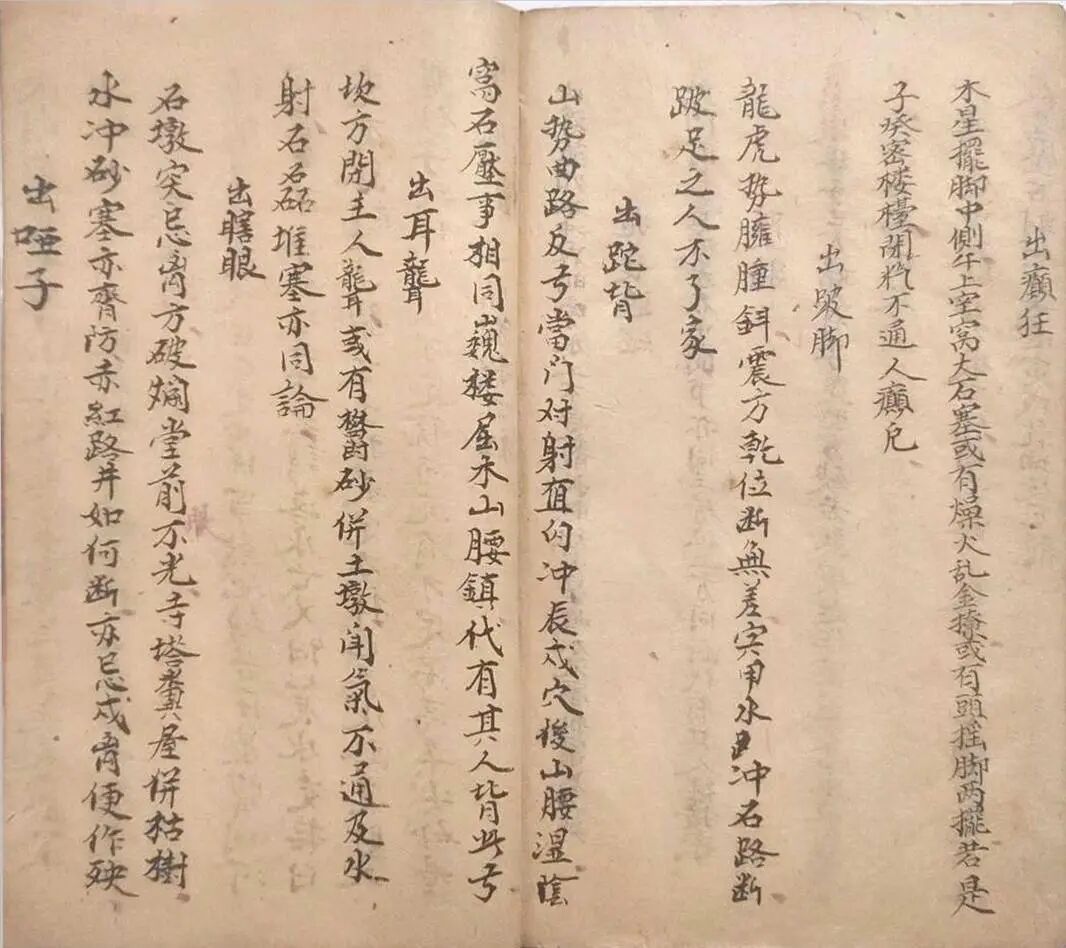 出癲狂
木星擺脚中側午上空窩大石塞或有燥火乱金掩或有頭摇脚两擺若是
子癸密楼檯閉杀不通人癲
出跛脚
龍虎勢臃腫斜震方乾位断無差穴用水冲石路断
跛足之人不了家
出跎背
山势曲路反弓當门对射直的冲辰戌穴後山腰湿陰
窩石壓事相同巍楼屋禾山腰鎮代有其人背出弓
出耳聾
坎方閉主人聾或有砂併土墩闭氣不通及水
射石磊堆塞亦同論
出瞎眼
石墩突忌离方破爛堂前不光寺塔粪屋併枯樹
水冲砂塞亦齊防赤紅路井如何断亦忌戌离便作殃
出哑子